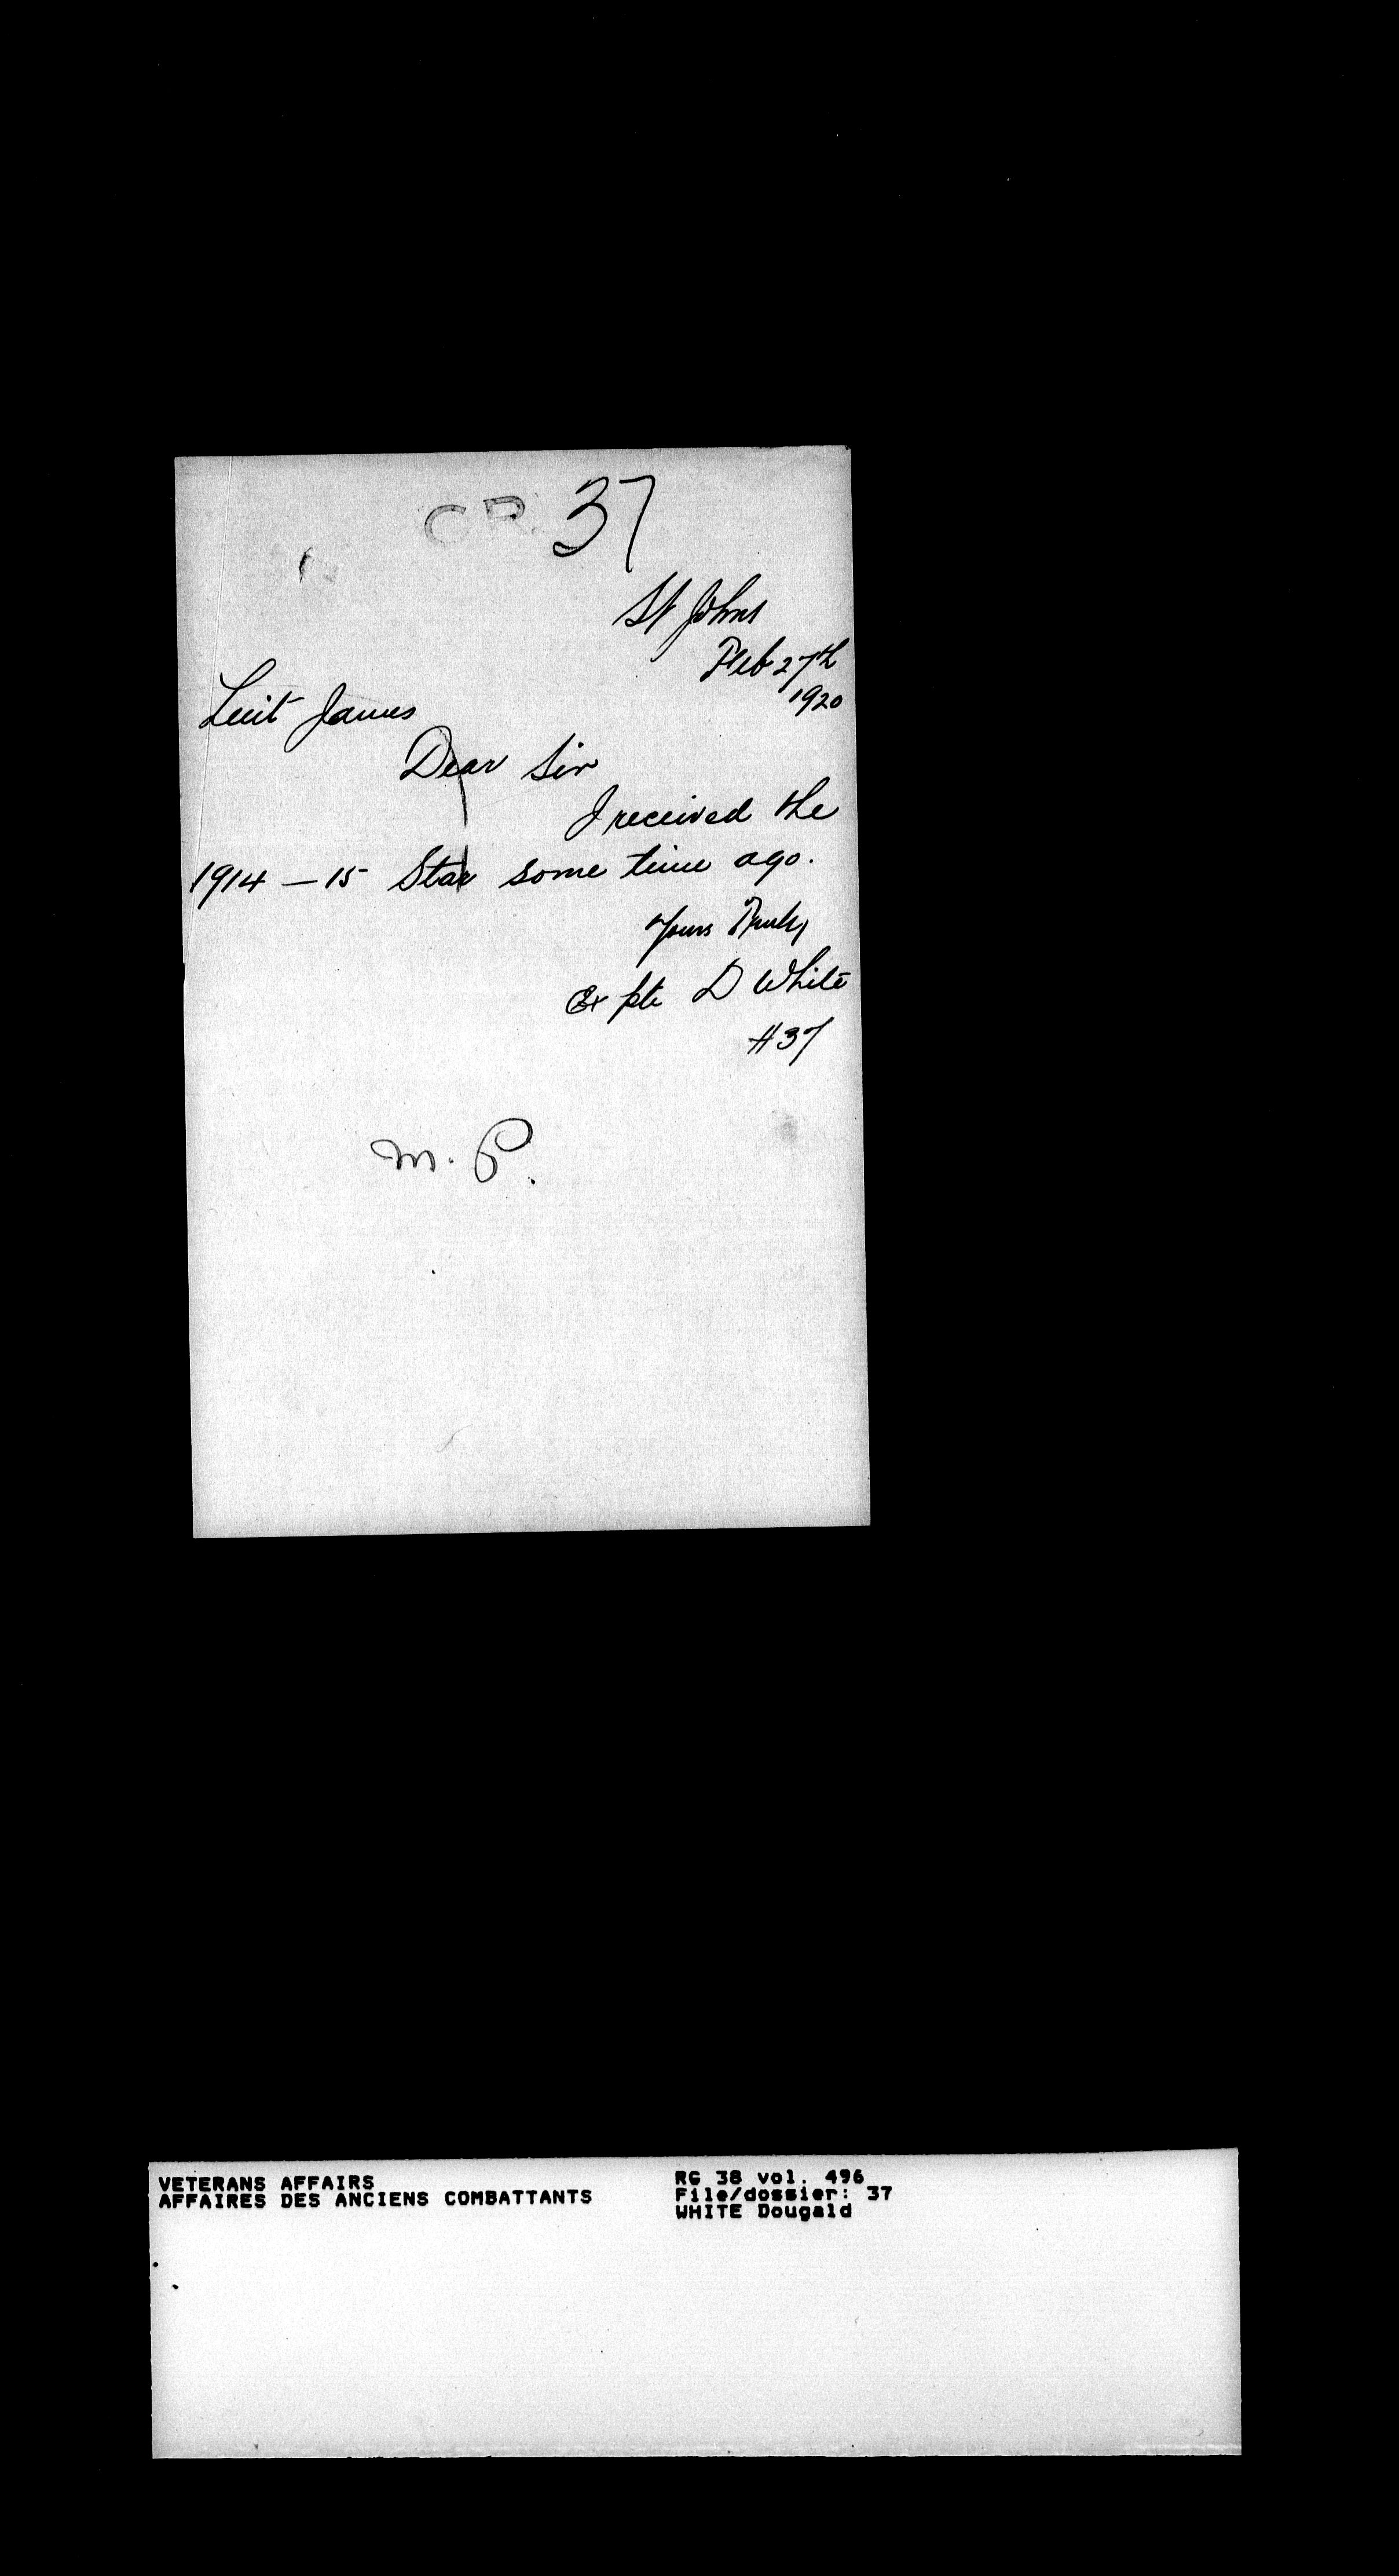 CR. 37
St Johns
Feb 27th
1920
Leuit James
Dear Sir
I received the
1914 – 15 Star some time ago.
Yours Truly,
Ex pte D White
#37
M. P.
VETERANS AFFAIRS
AFFAIRES DES ANCIENS COMBATTANTS
RG 38 vol. 496
File/dossier: 37
WHITE Dougald